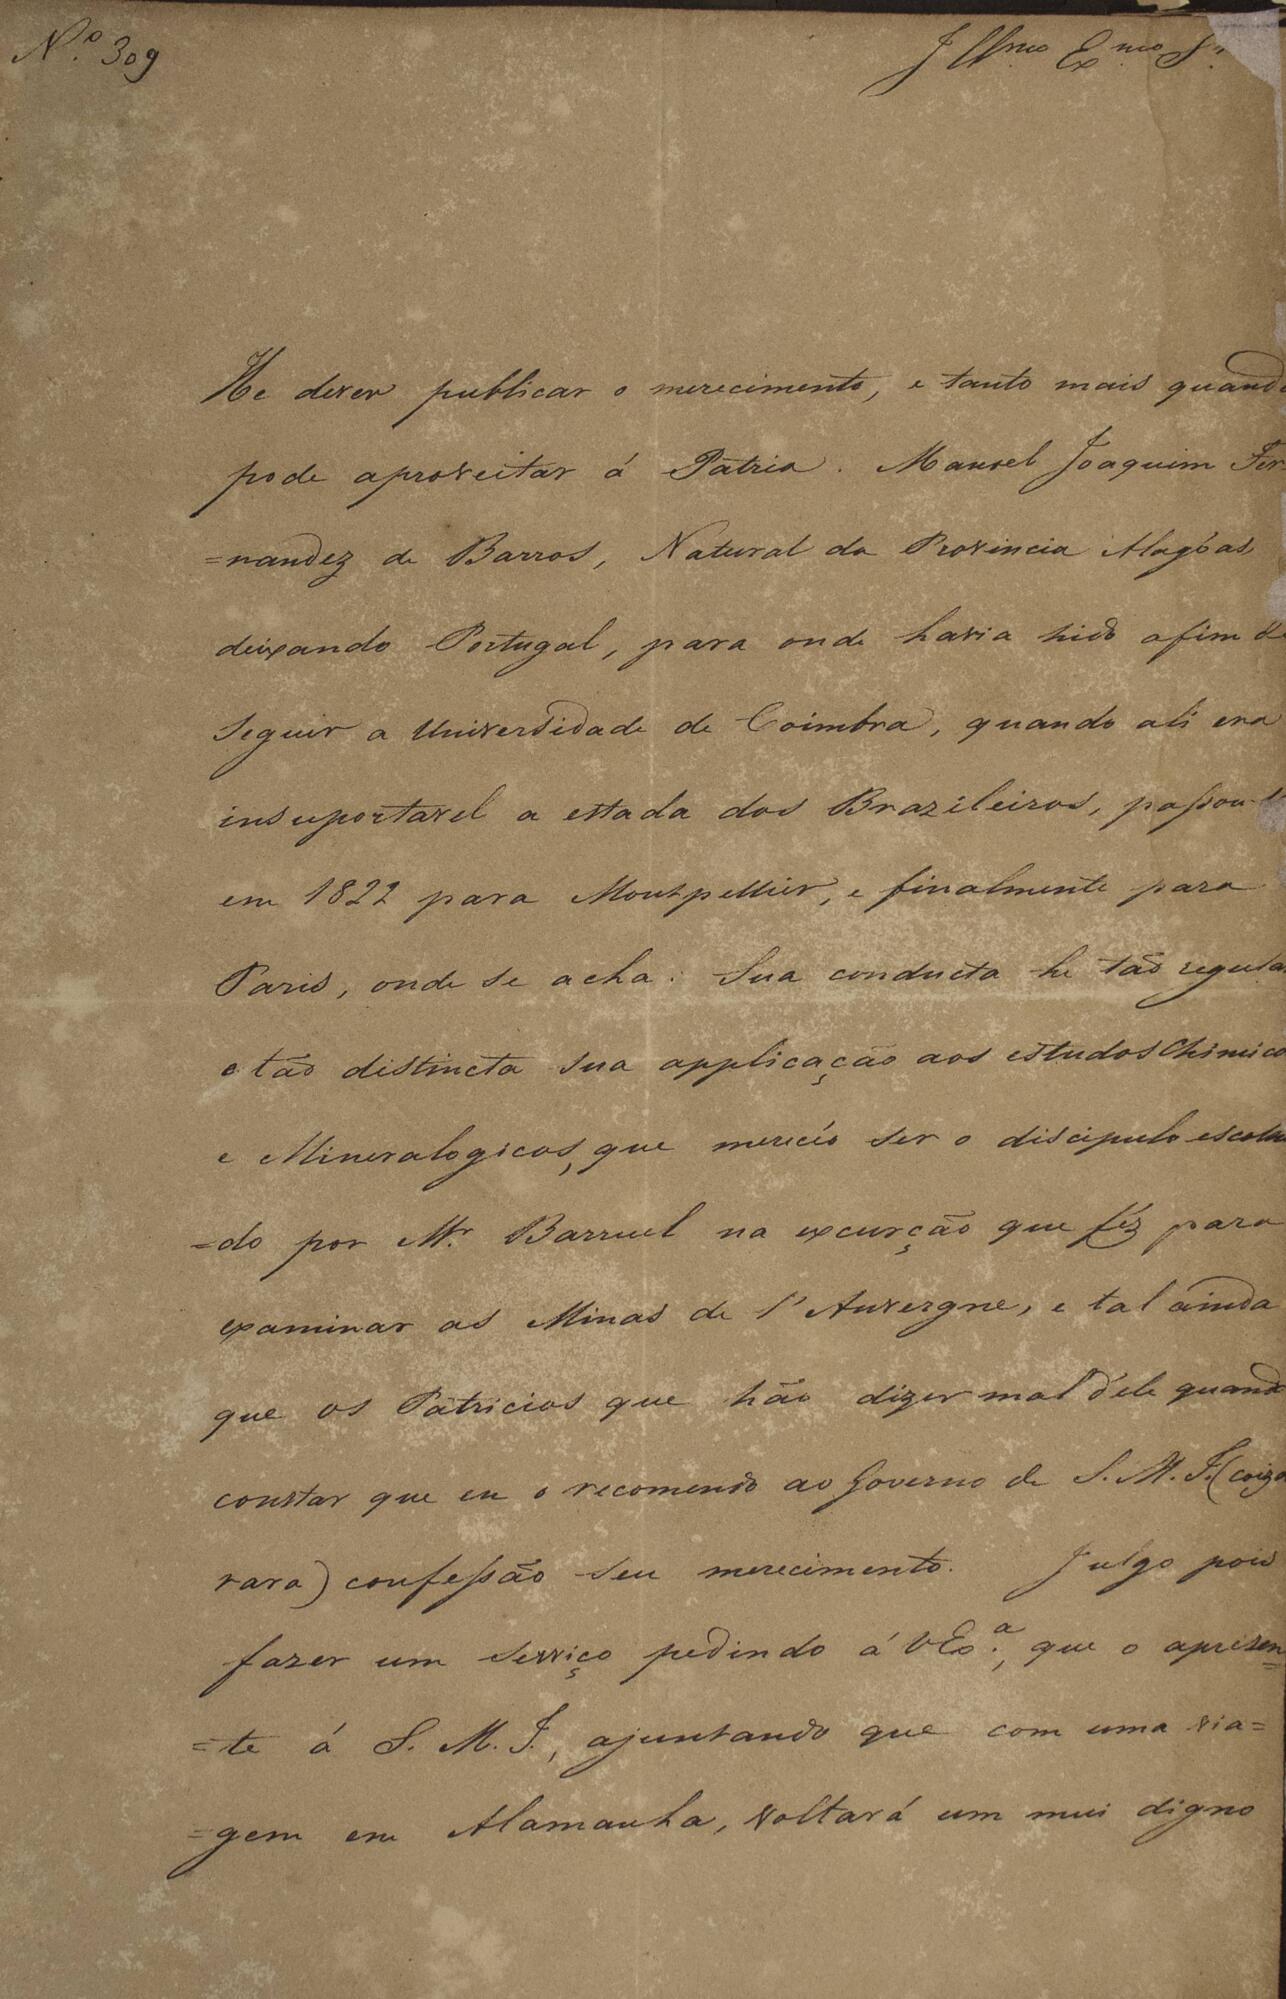 N.º 309
Illmo Exmo Sr.
He dever publicar o merecimento, e tanto mais quando
pode aproveitar á Patria. Manoel Joaquim Fer-
=nandez de Barros, Natural da Provincia Alagôas,
deixando Portugal, para onde havia hido afim de
seguir a Universidade de Coimbra, quando ali era
insuportavel a estada dos Brazileiros, passou-se
em 1822 para Montpellier, e finalmente para
Paris, onde se acha: Sua conducta he tão regular
e tão distincta sua applicação aos estudos Chimicos
e Mineralogicos, que merecéo ser o discipulo escolhi
=do por Mr. Barruel na excurção que féz para
examinar as Minas de l'Auvergne, e tal ainda
que os Patricios que hão dizer mal d'ele quando
constar que eu o recomendo ao Governo de S. M. I. (coiza
rara) confessão seu merecimento. Julgo pois
fazer um serviço pedindo á VExª., que o aprezen=
=te á S. M. I., ajuntando que com uma via=
=gem em Alamanha, voltará um mui digno